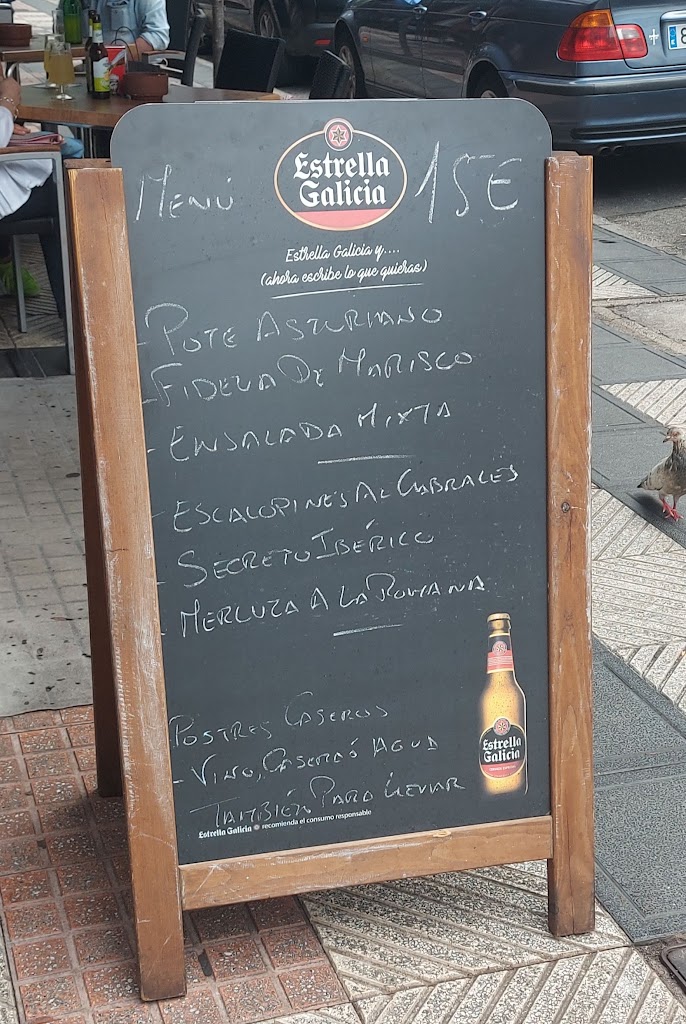 Menú Estrella Galicia 15€
Estrella Galicia y....
(ahora escribe lo que quieras)
- POTE ASTURIANO
- FIDEUA DE MARISCO
- ENSALADA MIXTA
- ESCALOPINES AL CABRALES
- SECRETO IBÉRICO
- MERLUZA A LA ROMANA
POSTRES CASEROS
- VINO, CASERA Ó AGUA
TAMBIÉN PARA LLEVAR
Estrella Galicia
Estrella Galicia recomienda el consumo responsable